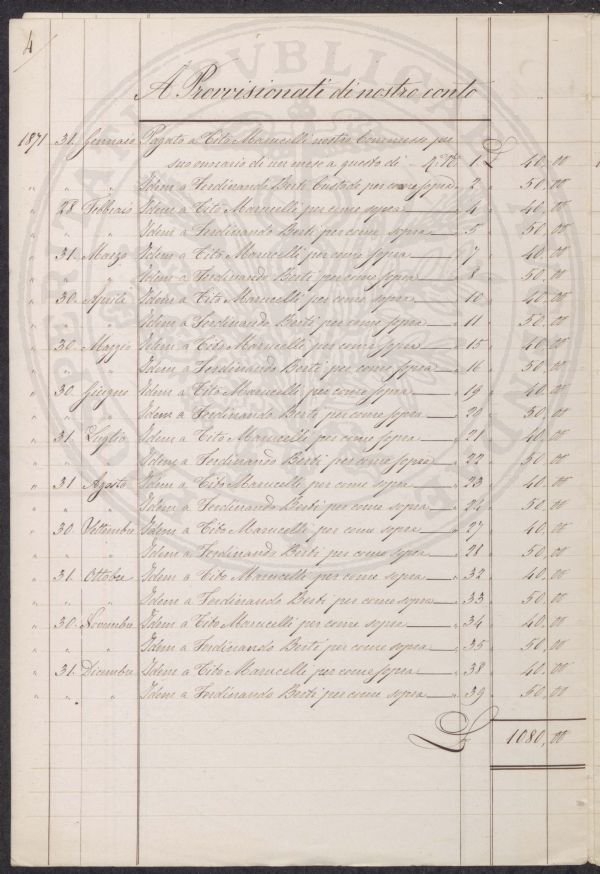 4
A Provvisionati di nostro conto
1871 31. Gennaio Pagato a Tito Marucelli nostro Commesso per
suo onorario di un mese a questo dì 1 £ 40,00
" " " Idem a Ferdinando Berti Custode per come sopra 2 " 50,00
" 28 Febbraio Idem a Tito Marucelli per come sopra " 4 " 40,00
" " " Idem a Ferdinando Berti per come sopra " 5 " 50,00
" 31. Marzo Idem a Tito Marucelli per come sopra " 7 " 40,00
" " " Idem a Ferdinando Berti per come sopra " 8 " 50,00
" 30. Aprile Idem a Tito Marucelli per come sopra " 10 " 40,00
" " " Idem a Ferdinando Berti per come sopra " 11 " 50,00
" 30. Maggio Idem a Tito Marucelli per come sopra " 15 " 40,00
" " " Idem a Ferdinando Berti per come sopra " 16 " 50,00
" 30. Giugno Idem a Tito Marucelli per come sopra " 19 " 40,00
" " " Idem a Ferdinando Berti per come sopra " 20 " 50,00
" 31. Luglio Idem a Tito Marucelli per come sopra " 21 " 40,00
" " " Idem a Ferdinando Berti per come sopra " 22 " 50,00
" 31 Agosto Idem a Tito Marucelli per come sopra " 23 " 40,00
" " " Idem a Ferdinando Berti per come sopra " 24 " 50,00
" 30 Settembre Idem a Tito Marucelli per come sopra " 27 " 40,00
" " " Idem a Ferdinando Berti per come sopra " 28 " 50,00
" 31. Ottobre Idem a Tito Marucelli per come sopra " 32 " 40,00
" " " Idem a Ferdinando Berti per come sopra " 33 " 50,00
" 30. Novembre Idem a Tito Marucelli per come sopra " 34 " 40,00
" " " Idem a Ferdinando Berti per come sopra " 35 " 50,00
" 31. Dicembre Idem a Tito Marucelli per come sopra " 38 " 40,00
" " " Idem a Ferdinando Berti per come sopra " 39 " 50,00
£ 1080,00